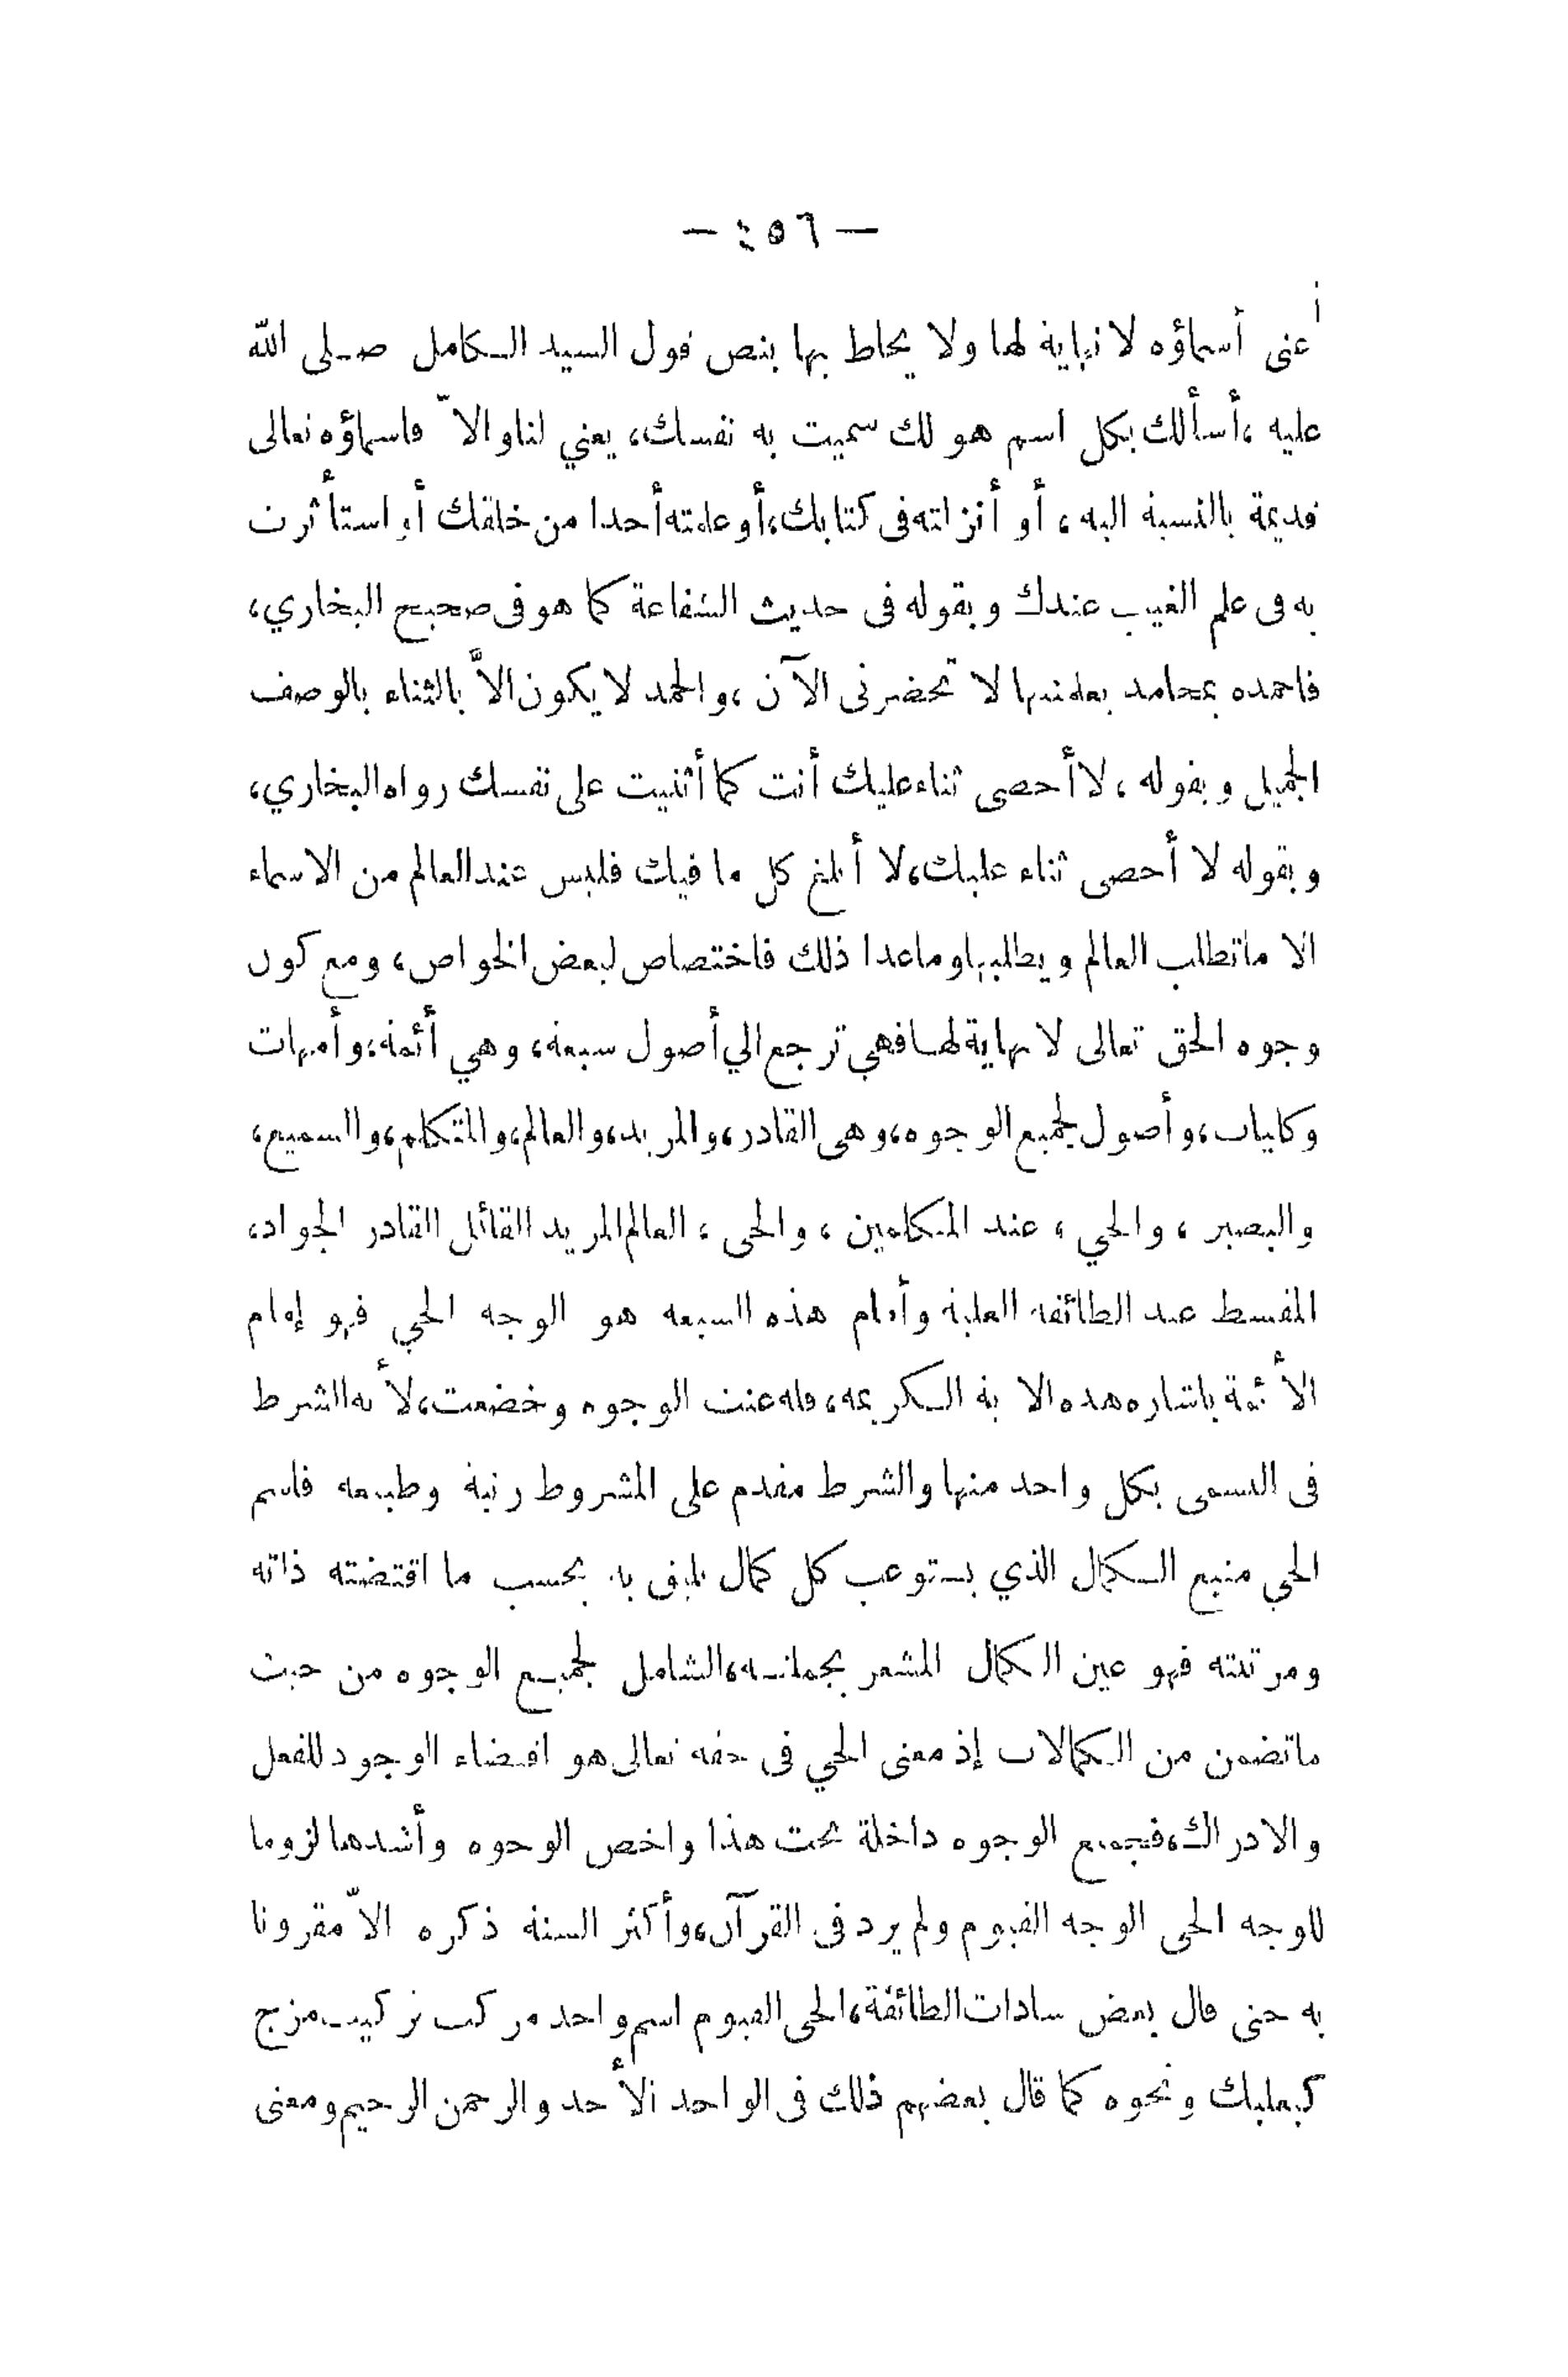 — ٤٥٦ —
أعنى أسماؤه لا نهاية لها ولا يحاط بها بنص قول السيد الكامل صلى الله
عليه ، أسألك بكل اسم هو لك سميت به نفسك، يعني لنا والاّ فاسماؤه تعالى
قديمة بالنسبة اليه ، أو أنزلته فى كتابك، أو علمته أحدا من خلقك أو استأثرت
به فى علم الغيب عندك وبقوله فى حديث الشفاعة كما هو فى صحيح البخاري،
فاحمده بمحامد يعلمنيها لا تحضرنى الآن ، والحمد لا يكون الاَّ بالثناء بالوصف
الجميل وبقوله ، لا أحصى ثناء عليك أنت كما أثنيت على نفسك رواه البخاري،
وبقوله لا أحصى ثناء عليك، لا أبلغ كل ما فيك فليس عند العالم من الاسماء
الا ماتطلب العالم ويطلبها وماعدا ذلك فاختصاص لبعض الخواص، ومع كون
وجوه الحق تعالى لا نهاية لها فهي ترجع الي أصول سبعة، وهي أئمة، وأمهات
وكليات، وأصول لجميع الوجوه، وهى القادر، والمريد، والعالم، والمتكلم، والسميع،
والبصير ، والحي ، عند المتكلمين ، والحى ، العالم المريد القائل القادر الجواد،
المقسط عند الطائفة العلية وأمام هذه السبعة هو الوجه الحي فهو إمام
الأئمة باشارة هذه الاية الكريمة، فله عنت الوجوه وخضعت، لأنه الشرط
فى التسمى بكل واحد منها والشرط مقدم على المشروط رتبة وطبيعة فاسم
الحى منبع الكمال الذي يستوعب كل كمال يليق به بحسب ما اقتضته ذاته
ومرتبته فهو عين الكمال المشعر بجملته، الشامل لجميع الوجوه من حيث
ماتضمن من الكمالات إذ معنى الحي فى حقه تعالى هو اقتضاء الوجود للفعل
والادراك، فجميع الوجوه داخلة تحت هذا واخص الوجوه وأشدها لزوما
للوجه الحى الوجه القيوم ولم يرد فى القرآن، وأكثر السنة ذكره الاّ مقرونا
به حتى قال بعض سادات الطائفة، الحى القيوم اسم واحد مركب تركيب مزج
كبعلبك ونحوه كما قال بعضهم ذلك فى الواحد الأحد والرحمن الرحيم ومعنى